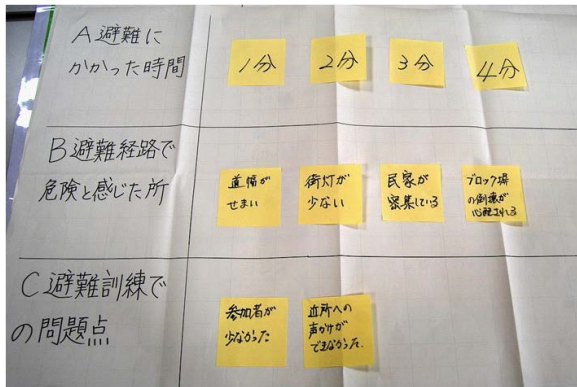 A避難に
かかった時間
1分
2分
3分
4分
B避難経路で
危険と感じた所
道幅が
せまい
街灯が
少ない
民家が
密集している
ブロック塀
の倒壊が
心配される
C避難訓練で
の問題点
参加者が
少なかった
近所への
声かけが
できなかった.